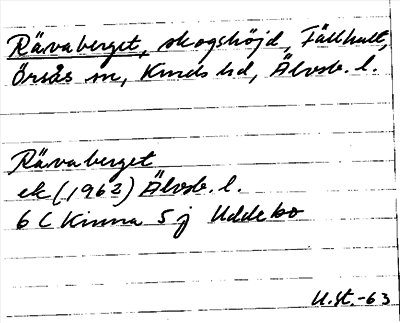 Rävaberget, skogshöjd, Fällhult,
Örsås sn, Kinds hd, Älvsb. l.
Rävaberget
ek (1962) Älvsb. l.
6 C Kinna 5 j Uddebo
U.St.-63